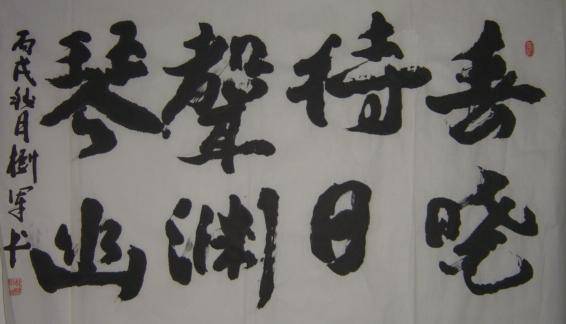 春晓
待日
聲淵
琴幽
丙戌秋月樹軍书